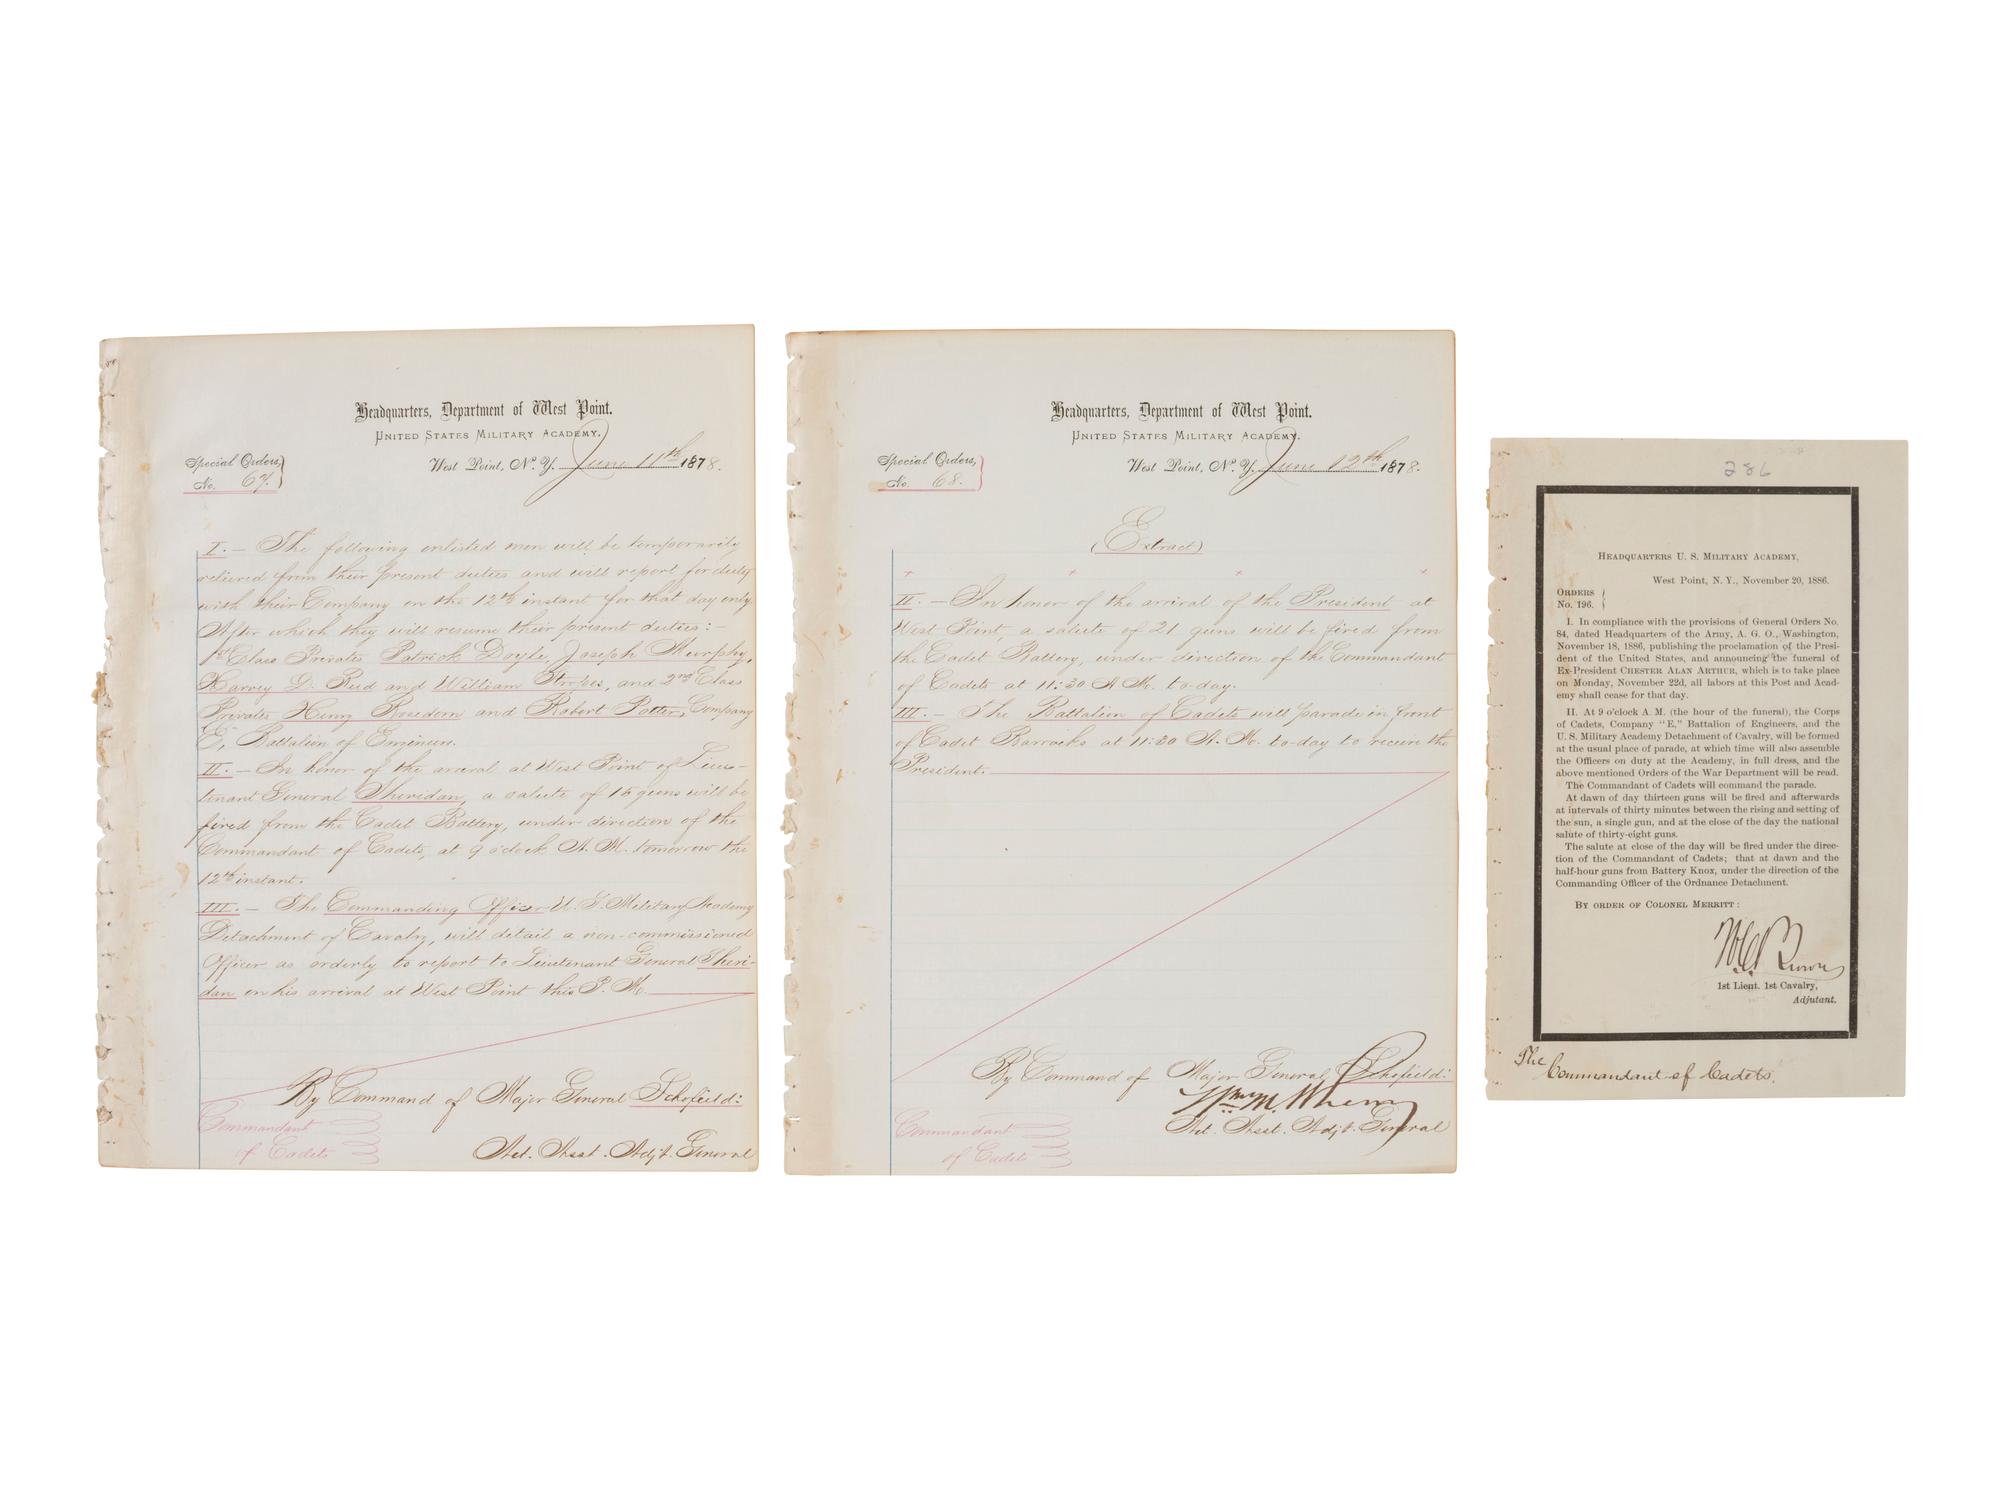 Headquarters, Department of West Point.
United States Military Academy.
West Point, N. Y. June 11th 1878.
Special Orders,
No. 67.
I. — The following enlisted men will be temporarily
relieved from their present duties and will report for duty
with their Company on the 12th instant for that day only.
After which they will resume their present duties:—
1st Class Privates Patrick Doyle, Joseph Murphy,
Harvey D. Reid and William Stropes, and 2nd Class
Privates Henry Rosedorn and Robert Potter, Company
E, Battalion of Engineers.
II. — In honor of the arrival at West Point of Lieu-
tenant General Sheridan, a salute of 15 guns will be
fired from the Cadet Battery, under direction of the
Commandant of Cadets, at 9 o'clock A. M. tomorrow the
12th instant.
III. — The Commanding Officer U. S. Military Academy
Detachment of Cavalry, will detail a non-commissioned
Officer as orderly to report to Lieutenant General Sheri-
dan on his arrival at West Point this P. M.
By Command of Major General Schofield:
Commandant
of Cadets
Act. Asst. Adjt. General
Headquarters, Department of West Point.
United States Military Academy.
West Point, N. Y. June 12th 1878.
Special Orders,
No. 68.
(Extract)
II. — In honor of the arrival of the President at
West Point, a salute of 21 guns will be fired from
the Cadet Battery, under direction of the Commandant
of Cadets at 11:30 A. M. to-day.
III. — The Battalion of Cadets will parade in front
of Cadet Barracks at 11:30 A. M. to-day to receive the
President.
By Command of Major General Schofield:
Wm. M. Wherry
Commandant
of Cadets
Act. Asst. Adjt. General
286
Headquarters U. S. Military Academy,
West Point, N. Y., November 20, 1886.
Orders
No. 196.
I. In compliance with the provisions of General Orders No.
84, dated Headquarters of the Army, A. G. O., Washington,
November 18, 1886, publishing the proclamation of the Presi-
dent of the United States, and announcing the funeral of
Ex-President CHESTER ALAN ARTHUR, which is to take place
on Monday, November 22d, all labors at this Post and Acad-
emy shall cease for that day.
II. At 9 o'clock A. M. (the hour of the funeral), the Corps
of Cadets, Company "E," Battalion of Engineers, and the
U. S. Military Academy Detachment of Cavalry, will be formed
at the usual place of parade, at which time will also assemble
the Officers on duty at the Academy, in full dress, and the
above mentioned Orders of the War Department will be read.
The Commandant of Cadets will command the parade.
At dawn of day thirteen guns will be fired and afterwards
at intervals of thirty minutes between the rising and setting of
the sun, a single gun, and at the close of the day the national
salute of thirty-eight guns.
The salute at close of the day will be fired under the direc-
tion of the Commandant of Cadets; that at dawn and the
half-hour guns from Battery Knox, under the direction of the
Commanding Officer of the Ordnance Detachment.
By order of Colonel Merritt:
W.C. Brown
1st Lieut. 1st Cavalry,
Adjutant.
The Commandant of Cadets.